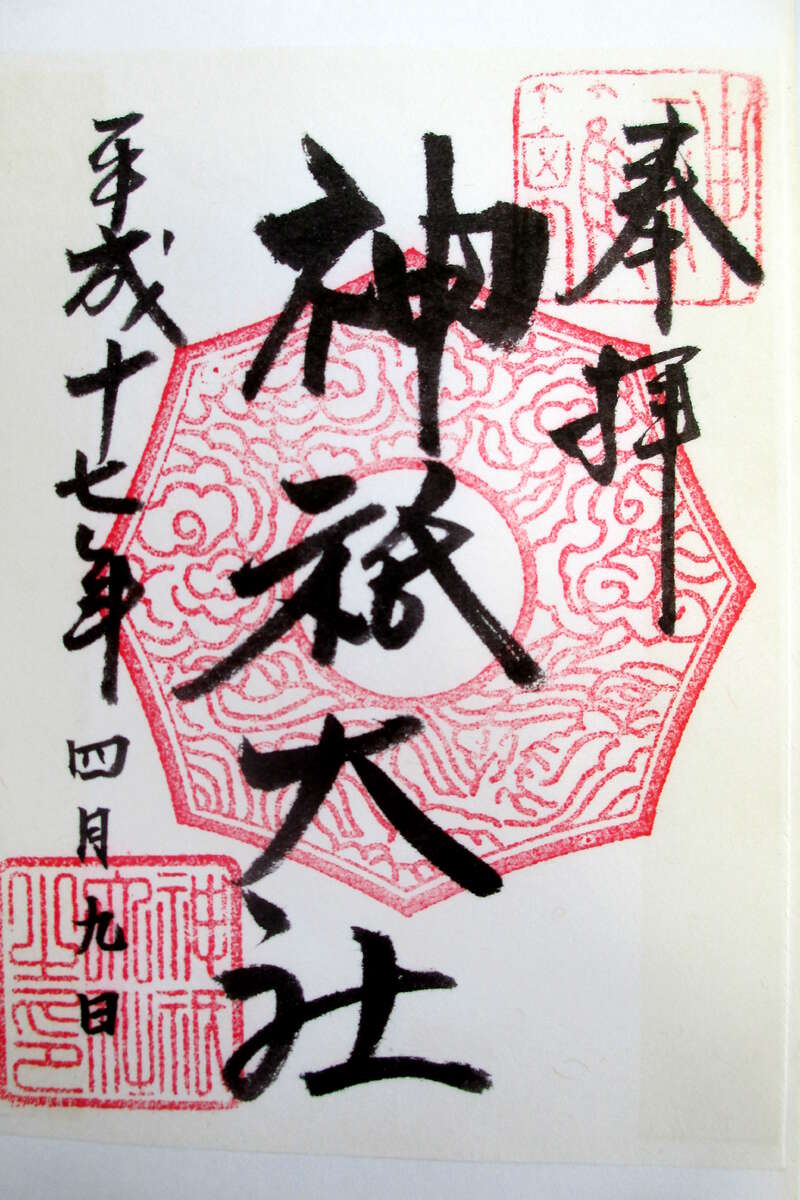 奉拝
神祇大社
平成十七年四月九日
神祇大社之印